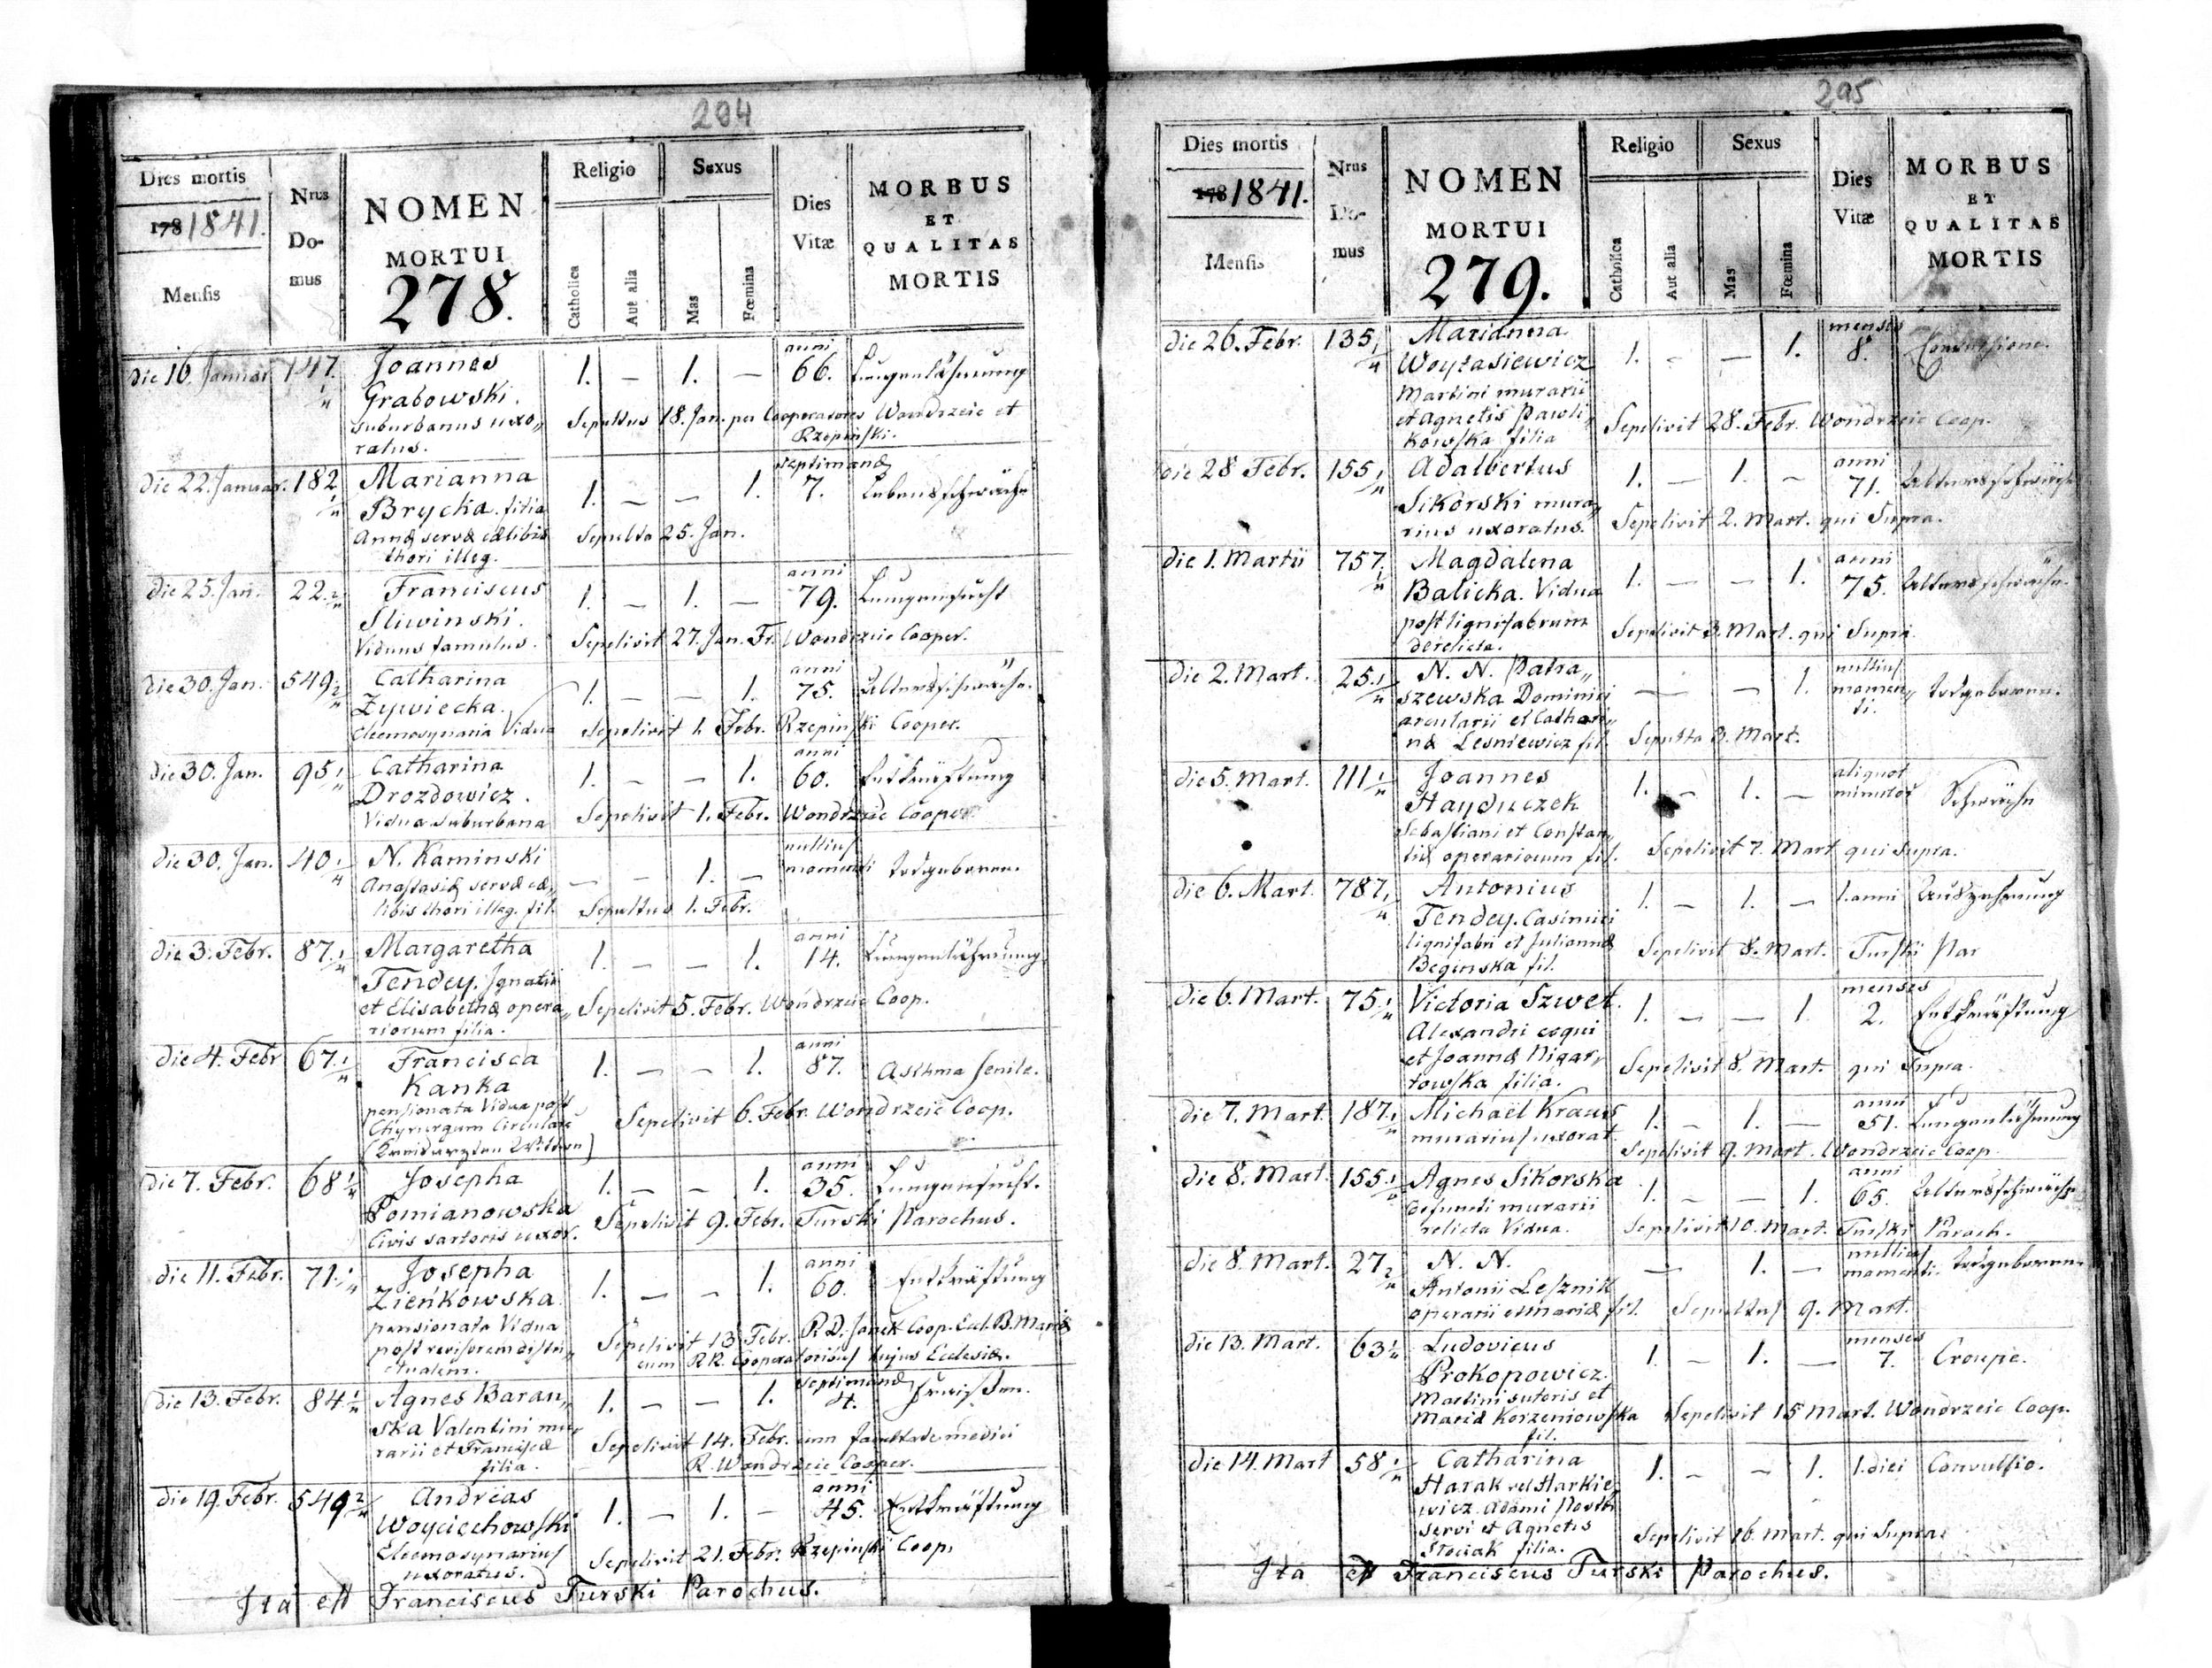 294
Dies mortis
178 1841.
Mensis
Nrus
Do-
mus
NOMEN
MORTUI
278.
Religio
Catholica
Aut alia
Sexus
Mas
Fœmina
Dies
Vitæ
MORBUS
ET
QUALITAS
MORTIS
die 16. Januar 147. 1/4 Joannes 1. — 1. — anni 66. Lungenlähmung
Grabowski.
suburbanus uxo„ Sepultus 18. Jan. per Cooperatores Wondrzeic et
ratus. Rzepinski.
die 22. Januar. 182 1/4 Marianna 1. — — 1. septimanæ 7. Lebensschwäche
Brycka. filia
Annæ servæ cælibis Sepulta 25. Jan.
thori illeg.
die 25. Jan. 22. 2/4 Franciscus 1. — 1. — anni 79. Lungensucht
Sliwinski.
Viduus famulus. Sepelivit 27. Jan. Fr. Wondrzeic Cooper.
die 30. Jan. 549 2/4 Catharina 1. — — 1. anni 75. Altersschwäche.
Zywiecka.
Eleemosynaria Vidua Sepelivit 1. Febr. Rzepinski Cooper.
die 30. Jan. 95 1/4 Catharina 1. — — 1. anni 60. Entkräftung
Drozdowicz.
Vidua suburbana Sepelivit 1. Febr. Wondrzeic Cooper
die 30. Jan. 40 1/4 N. Kaminski — — 1. — nullius momenti todgeboren.
Anastasiæ servæ cæ„
libis thori illeg. fil. Sepultus 1. Febr.
die 3. Febr. 87. 1/4 Margaretha 1. — — 1. anni 14. Lungenlähmung
Tendey. Ignatii
et Elisabethæ opera„ Sepelivit 5. Febr. Wondrzeic Coop.
riorum filia.
die 4. Febr 67. 1/4 Francisca 1. — — 1. anni 87. Asthma senile.
Kanka
pensionata Vidua post Sepelivit 6. Febr. Wondrzeic Coop.
Chyrurgum Circulare
(Kreisarzten Wittwe)
die 7. Febr. 68 1/4 Josepha 1. — — 1. anni 35. Lungensucht.
Pomianowska
Civis sartoris uxor. Sepelivit 9. Febr. Turski Parochus.
die 11. Febr. 71. 1/4 Josepha 1. — — 1. anni 60. Entkräftung
Zieńkowska
pensionata Vidua Sepelivit 13 Febr. R. D. Janek Coop. Eccl. B. Mariæ
post revisorem distri„ cum RR. Cooperatoribus hujus Ecclesiæ.
ctualem.
die 13. Febr. 84 1/4 Agnes Baran„ 1. — — 1. septimanæ 4.
ska Valentini mu„
rarii et Franciscæ Sepelivit 14. Febr. cum facultate medici
filia. R. Wondrzeic Cooper.
die 19. Febr. 549 2/4 Andreas 1. — 1. — anni 45. Entkräftung
Woyciechowski
Eleemosynarius Sepelivit 21. Febr. Rzepinski Coop.
uxoratus.
Ita est Franciscus Turski Parochus.
295
Dies mortis
178 1841.
Mensis
Nrus
Do-
mus
NOMEN
MORTUI
279.
Religio
Catholica
Aut alia
Sexus
Mas
Fœmina
Dies
Vitæ
MORBUS
ET
QUALITAS
MORTIS
die 26. Febr. 135 1/4 Marianna 1. — — 1. menses 8. Convulsione.
Woytasiewicz
Martini murarii
et Agnetis Pawli„ Sepelivit 28. Febr. Wondrzeic Coop.
kowska filia
die 28 Febr. 155 1/4 Adalbertus 1. — 1. — anni 71. Altersschwäche
Sikorski mura„
rius uxoratus. Sepelivit 2. Mart. qui Supra.
die 1. Martii 757. 1/4 Magdalena 1. — — 1. anni 75. Altersschwäche.
Balicka. Vidua
post lignifabrum Sepelivit 3. Mart. qui Supra
derelicta.
die 2. Mart. 25. 1/4 N. N. Patra„ — — 1. nullius momen„ti. todgeboren.
szewska Dominici
arcularii et Cathari„
næ Lesniewicz fil. Sepulta 3. Mart.
die 5. Mart. 111 1/4 Joannes 1. — 1. — aliquot minutos Schwäche
Hayduczek
Sebastiani et Constan„
tiæ operariorum fil. Sepelivit 7. Mart qui supra.
die 6. Mart. 787. 1/4 Antonius 1. — 1. — 1. anni Auszehrung
Tendey. Casimiri
lignifabri et Juliannæ Sepelivit 8. Mart. Turski Par
Beginska fil.
die 6. Mart. 75. 1/4 Victoria Szwet. 1. — — 1. menses 2. Entkräftung
Alexandri
et Joannæ Nigar„ Sepelivit 8. Mart. qui Supra.
towska filia.
die 7. Mart. 187. 1/4 Michaël Kraus 1. — 1. — anni 51. Lungenlähmung
murarius uxorat. Sepelivit 9. Mart. Wondrzeic Coop
die 8. Mart. 155. 1/4 Agnes Sikorska 1. — — 1. anni 65. Altersschwäche
defuncti murarii
relicta Vidua. Sepelivit 10. Mart. Turski Paroch.
die 8. Mart. 27 2/4 N. N. — 1. — nullius momenti. todgeboren
Antonii Lesznik
operarii et Mariæ fil. Sepultus 9. Mart.
die 13. Mart. 63 1/4 Ludovicus 1. — 1. — menses 7. Croupe.
Prokopowicz.
Martini sutoris et
Mariæ Korzeniowska Sepelivit 15 Mart. Wondrzeic Coop.
fil.
die 14. Mart 58 1/4 Catharina 1. — — 1. 1. diei Convulsio.
Harak vel Harkie„
wicz. Adami
servi et Agnetis Sepelivit 16. Mart. qui Supra
Stociak filia.
Ita est Franciscus Turski Parochus.